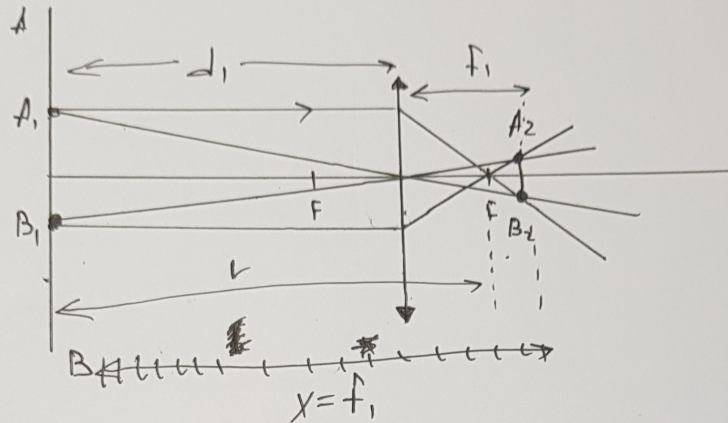 A
d₁
f₁
A₁
A₂
F
F
B₁
B₂
r
B
x = f₁